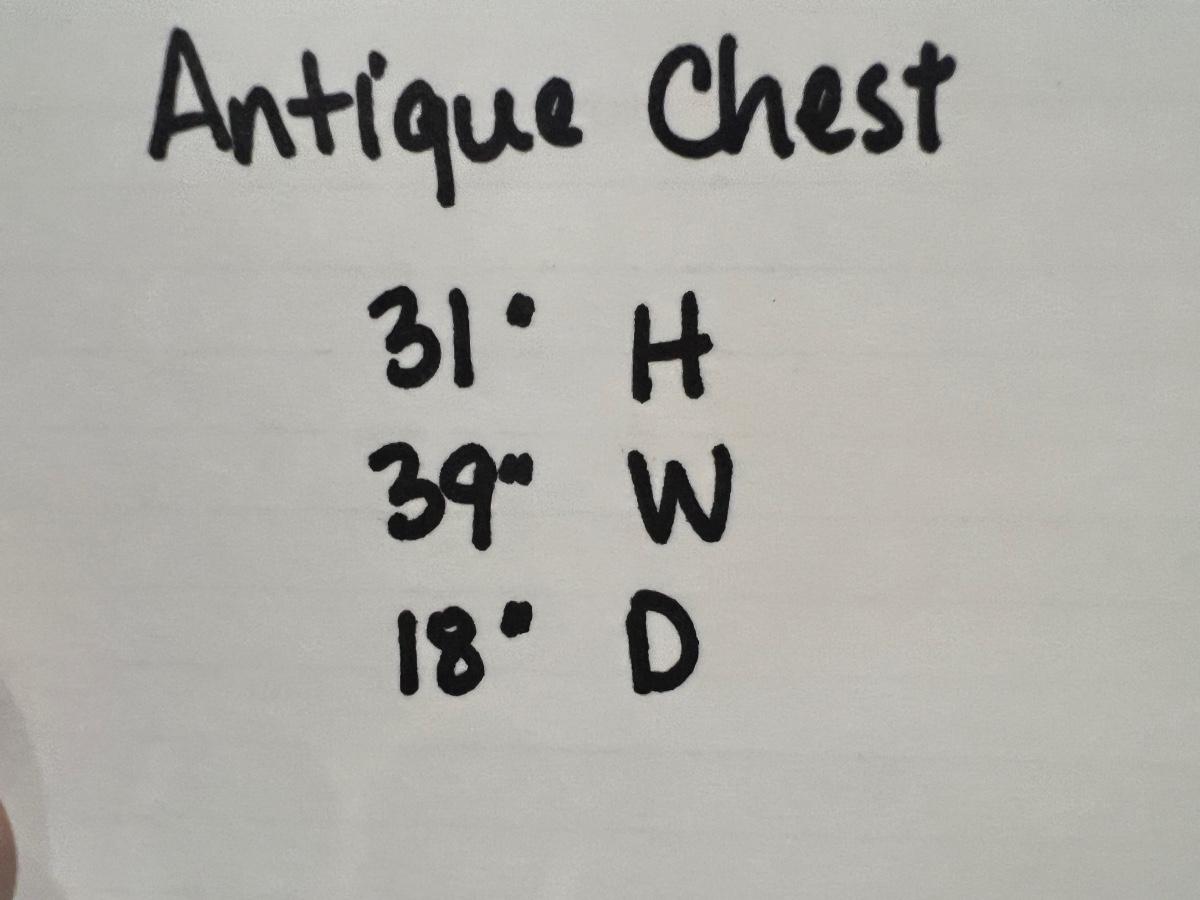 Antique Chest
31" H
39" W
18" D